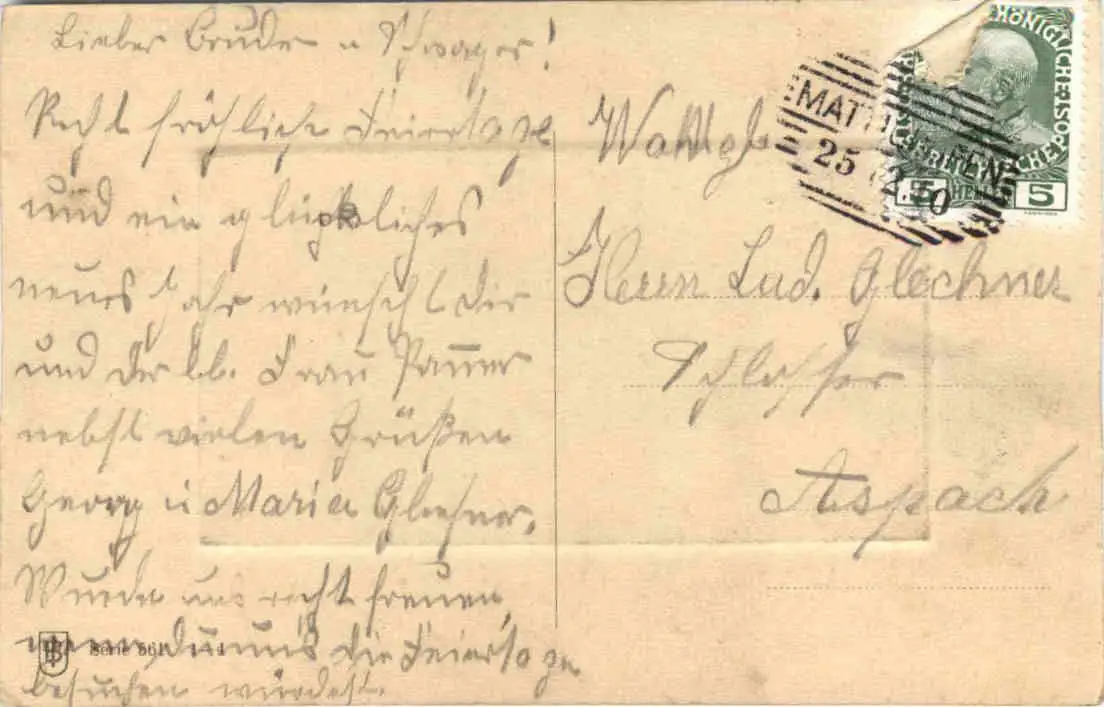 Lieber Bruder u Schwager!
Recht fröhliche Feiertage
und ein glückliches
neues Jahr wünscht dir
und der lb. Frau
nebst vielen Grüßen
Georg u Maria Glechner.
Würde uns recht freuen,
wenn du uns die Feiertage
besuchen würdest.
Serie 561
Wohlgb
Herrn Lud. Glechner
Schlosser
Aspach
MATT
25 12 10
KÖNIGLICHE
5 HELLER 5